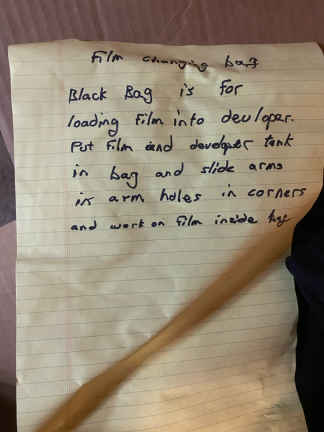 Film changing bag
Black Bag is for
loading Film into developer.
Put Film and developer tank
in bag and slide arms
in arm holes in corners
and work on Film inside bag